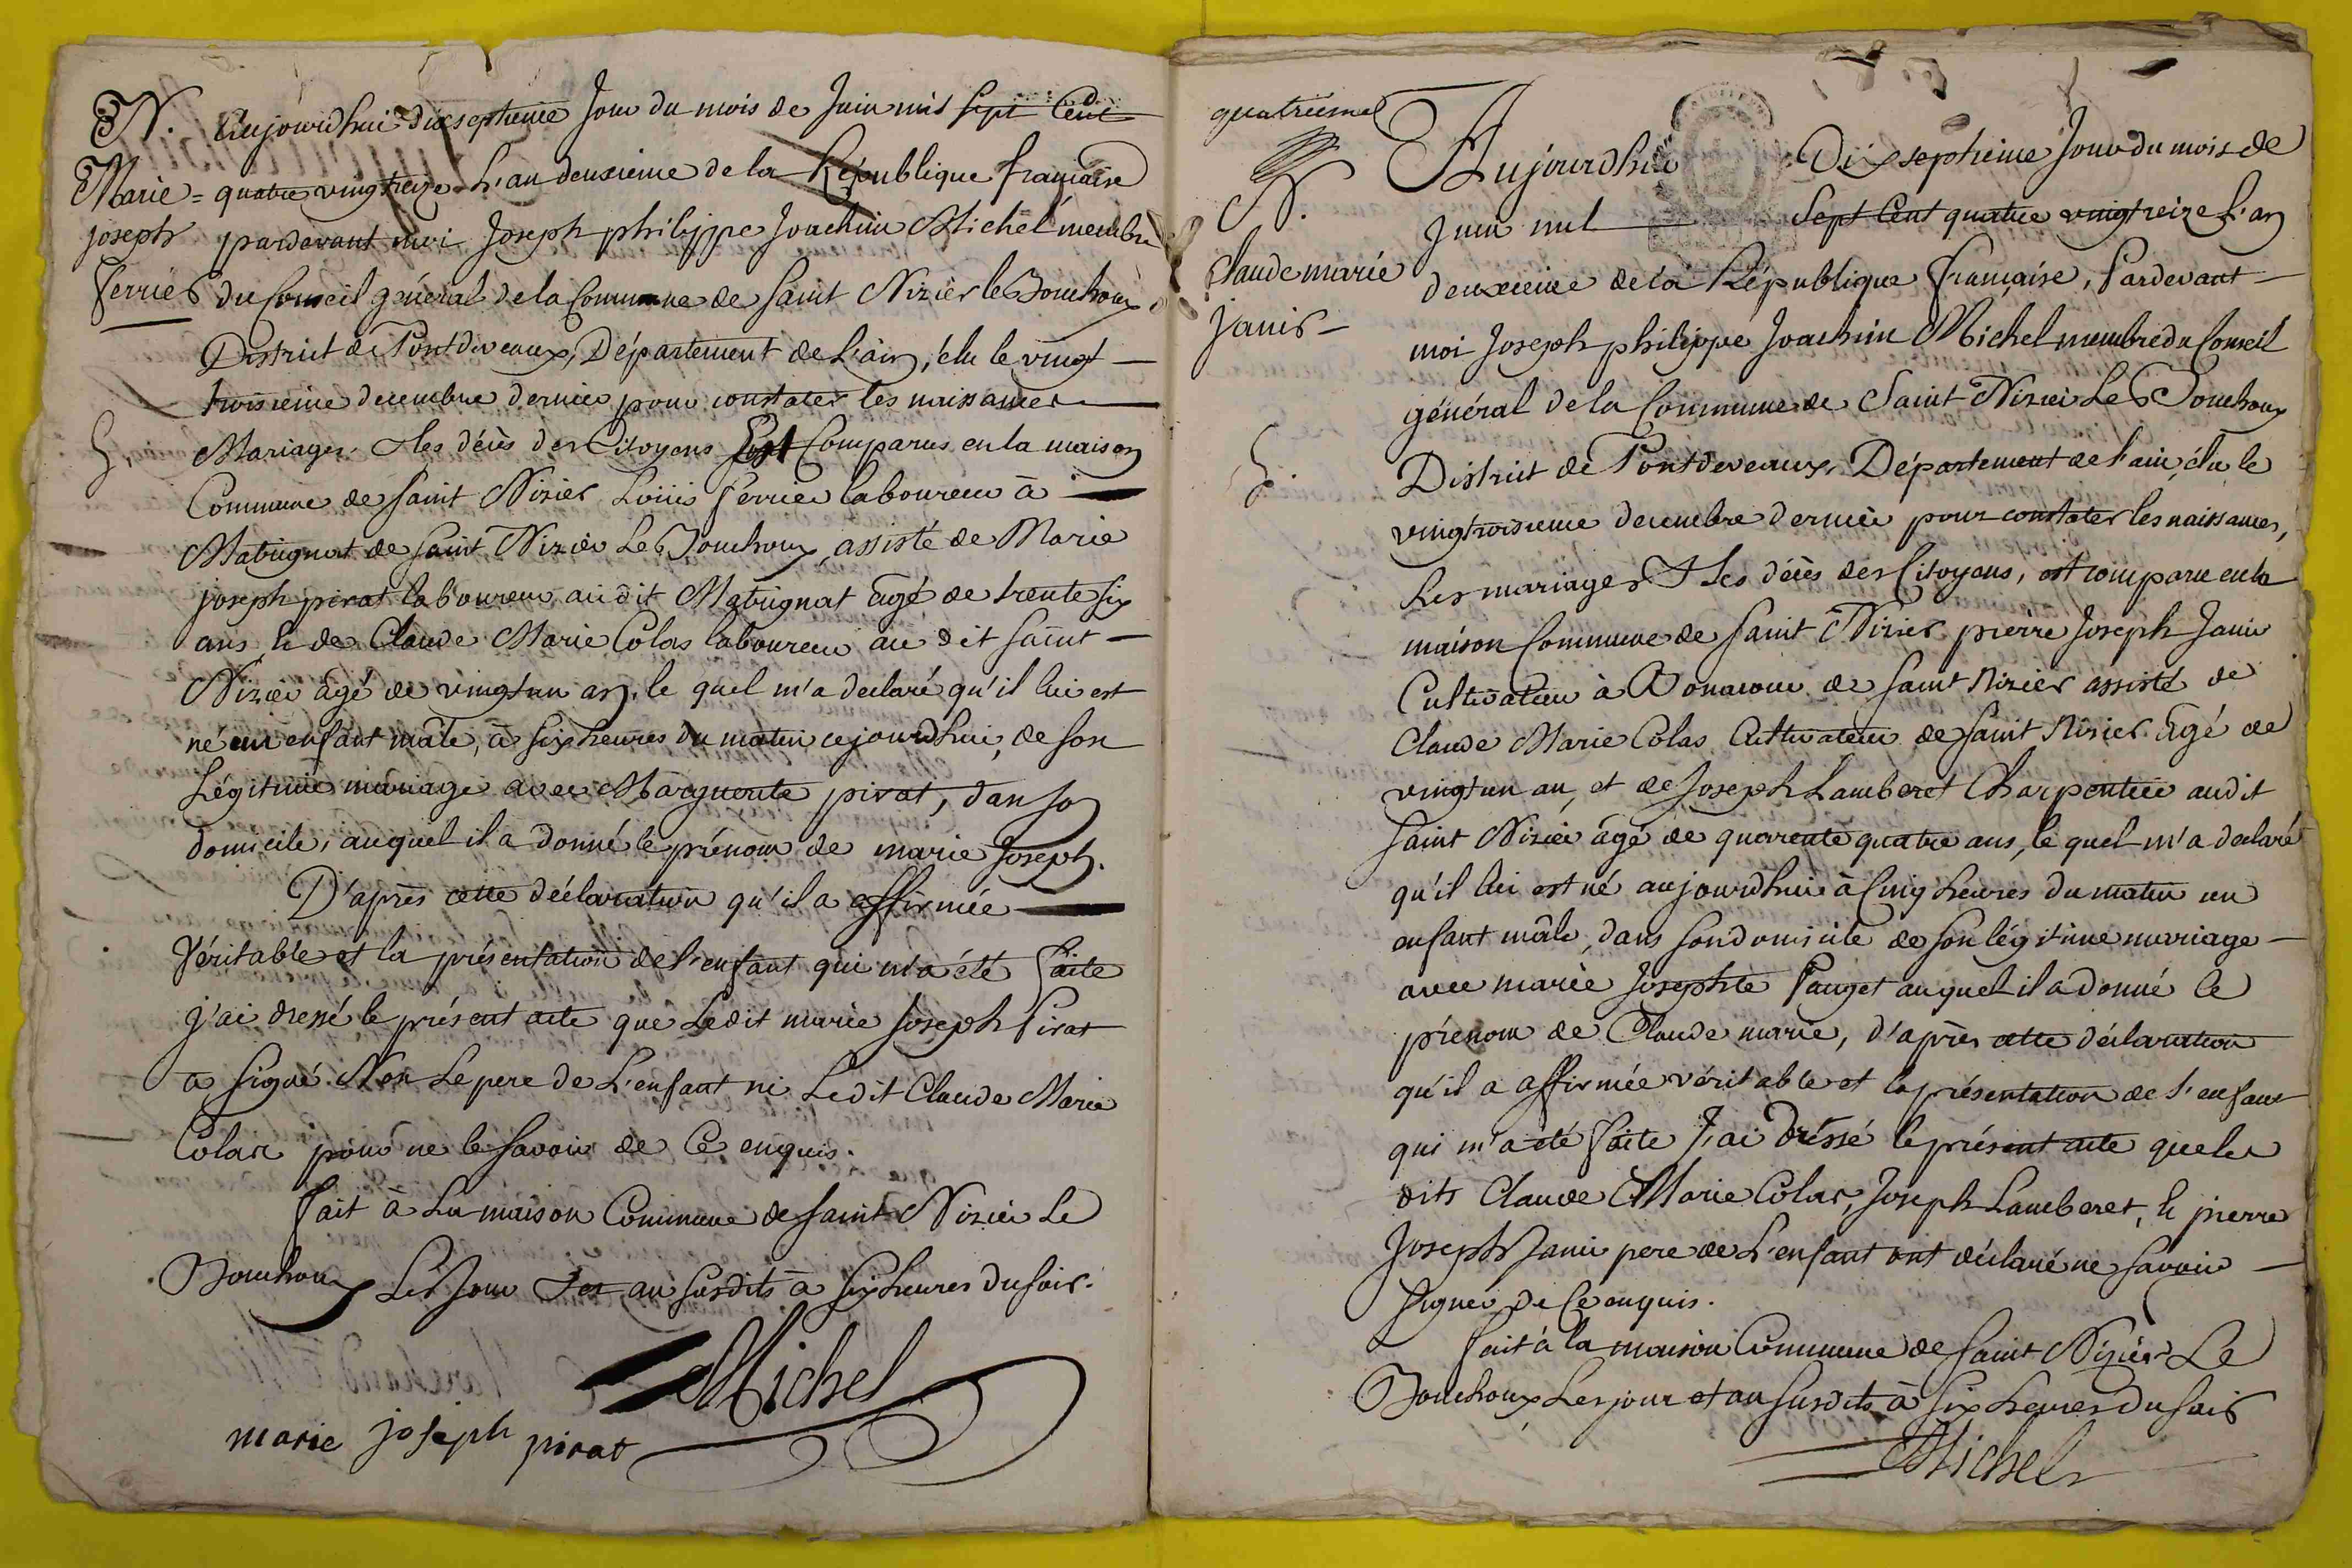 N.
Marie =
joseph
ferrier
Aujourdhui dixseptieme Jour du mois de Juin mil sept Cent
quatre vingt treize L'an deuxieme de la République française
pardevant moi Joseph philippe Joachim Michel membre
du Conseil général de la Commune de saint Nizier le Bouchoux
District de Pontdevaux, Département de L'ain, élu le vingt
troisieme decembre dernier pour constater les naissances
Mariages & les décès des Citoyens Est Comparus en la maison
Commune de saint Nizier ferrier laboureur à
Matrignat de saint Nizier Le Bouchoux, assisté de Marie
joseph pirat laboureur audit Matrignat âgé de trente six
ans & de Claude Marie Colas laboureur au dit saint
Nizier âgé de vingt un an, le quel m'a declaré qu'il lui est
né un enfant mâle, à six heures du matin cejourdhui, de son
Légitime mariage avec Marguerite pirat, dans son
domicile, auquel il a donné le prénom de marie Joseph.
D'après cette déclaration qu'il a affirmée
Véritable et la présentation de l'enfant qui m'a été faite
j'ai dressé le présent acte que Ledit marie Joseph Pirat
a signé Non Le pere de L'enfant ni Ledit Claude Marie
Colas pour ne le savoir de ce enquis.
fait à La maison Commune de saint Nizier Le
Bouchoux Les Jour & an susdits à six heures du soir.
Michel
marie joseph pirat
quatriême
N.
Claude marie
Janin
Aujourdhui Dixseptieme Jour du mois de
Juin mil Sept Cent quatre vingt treize L'an
deuxieme de la République française, Pardevant
moi Joseph philippe Joachim Michel membre du Conseil
général de la Commune de Saint Nizier Le Bouchoux
District de Pontdevaux, Département de l'ain, élu le
vingt troisieme decembre dernier pour constater les naissances,
Les mariages & les décès des Citoyens, est comparu en la
maison Commune de saint Nizier pierre Joseph Janin
Cultivateur à de saint Nizier assisté de
Claude Marie Colas Cultivateur de saint Nizier âgé de
vingt un an, et de Joseph Lamberet Charpentier audit
saint Nizier âgé de quarente quatre ans, le quel m'a declaré
qu'il lui est né aujourdhui à Cinq heures du matin un
enfant mâle, dans son domicile de son légitime mariage
avec marie Josephte Pauget auquel il a donné le
prénom de Claude marie, d'après cette déclaration
qu'il a affirmée véritable et la présentation de l'enfant
qui m'a été faite J'ai dréssé le présent acte que les
dits Claude Marie Colas, Joseph Lamberet, & pierre
Joseph Janin pere de L'enfant ont déclaré ne savoir
signer de ce enquis.
fait à la maison Commune de saint Nizier Le
Bouchoux Les jour et an susdits à six heures du soir
Michel